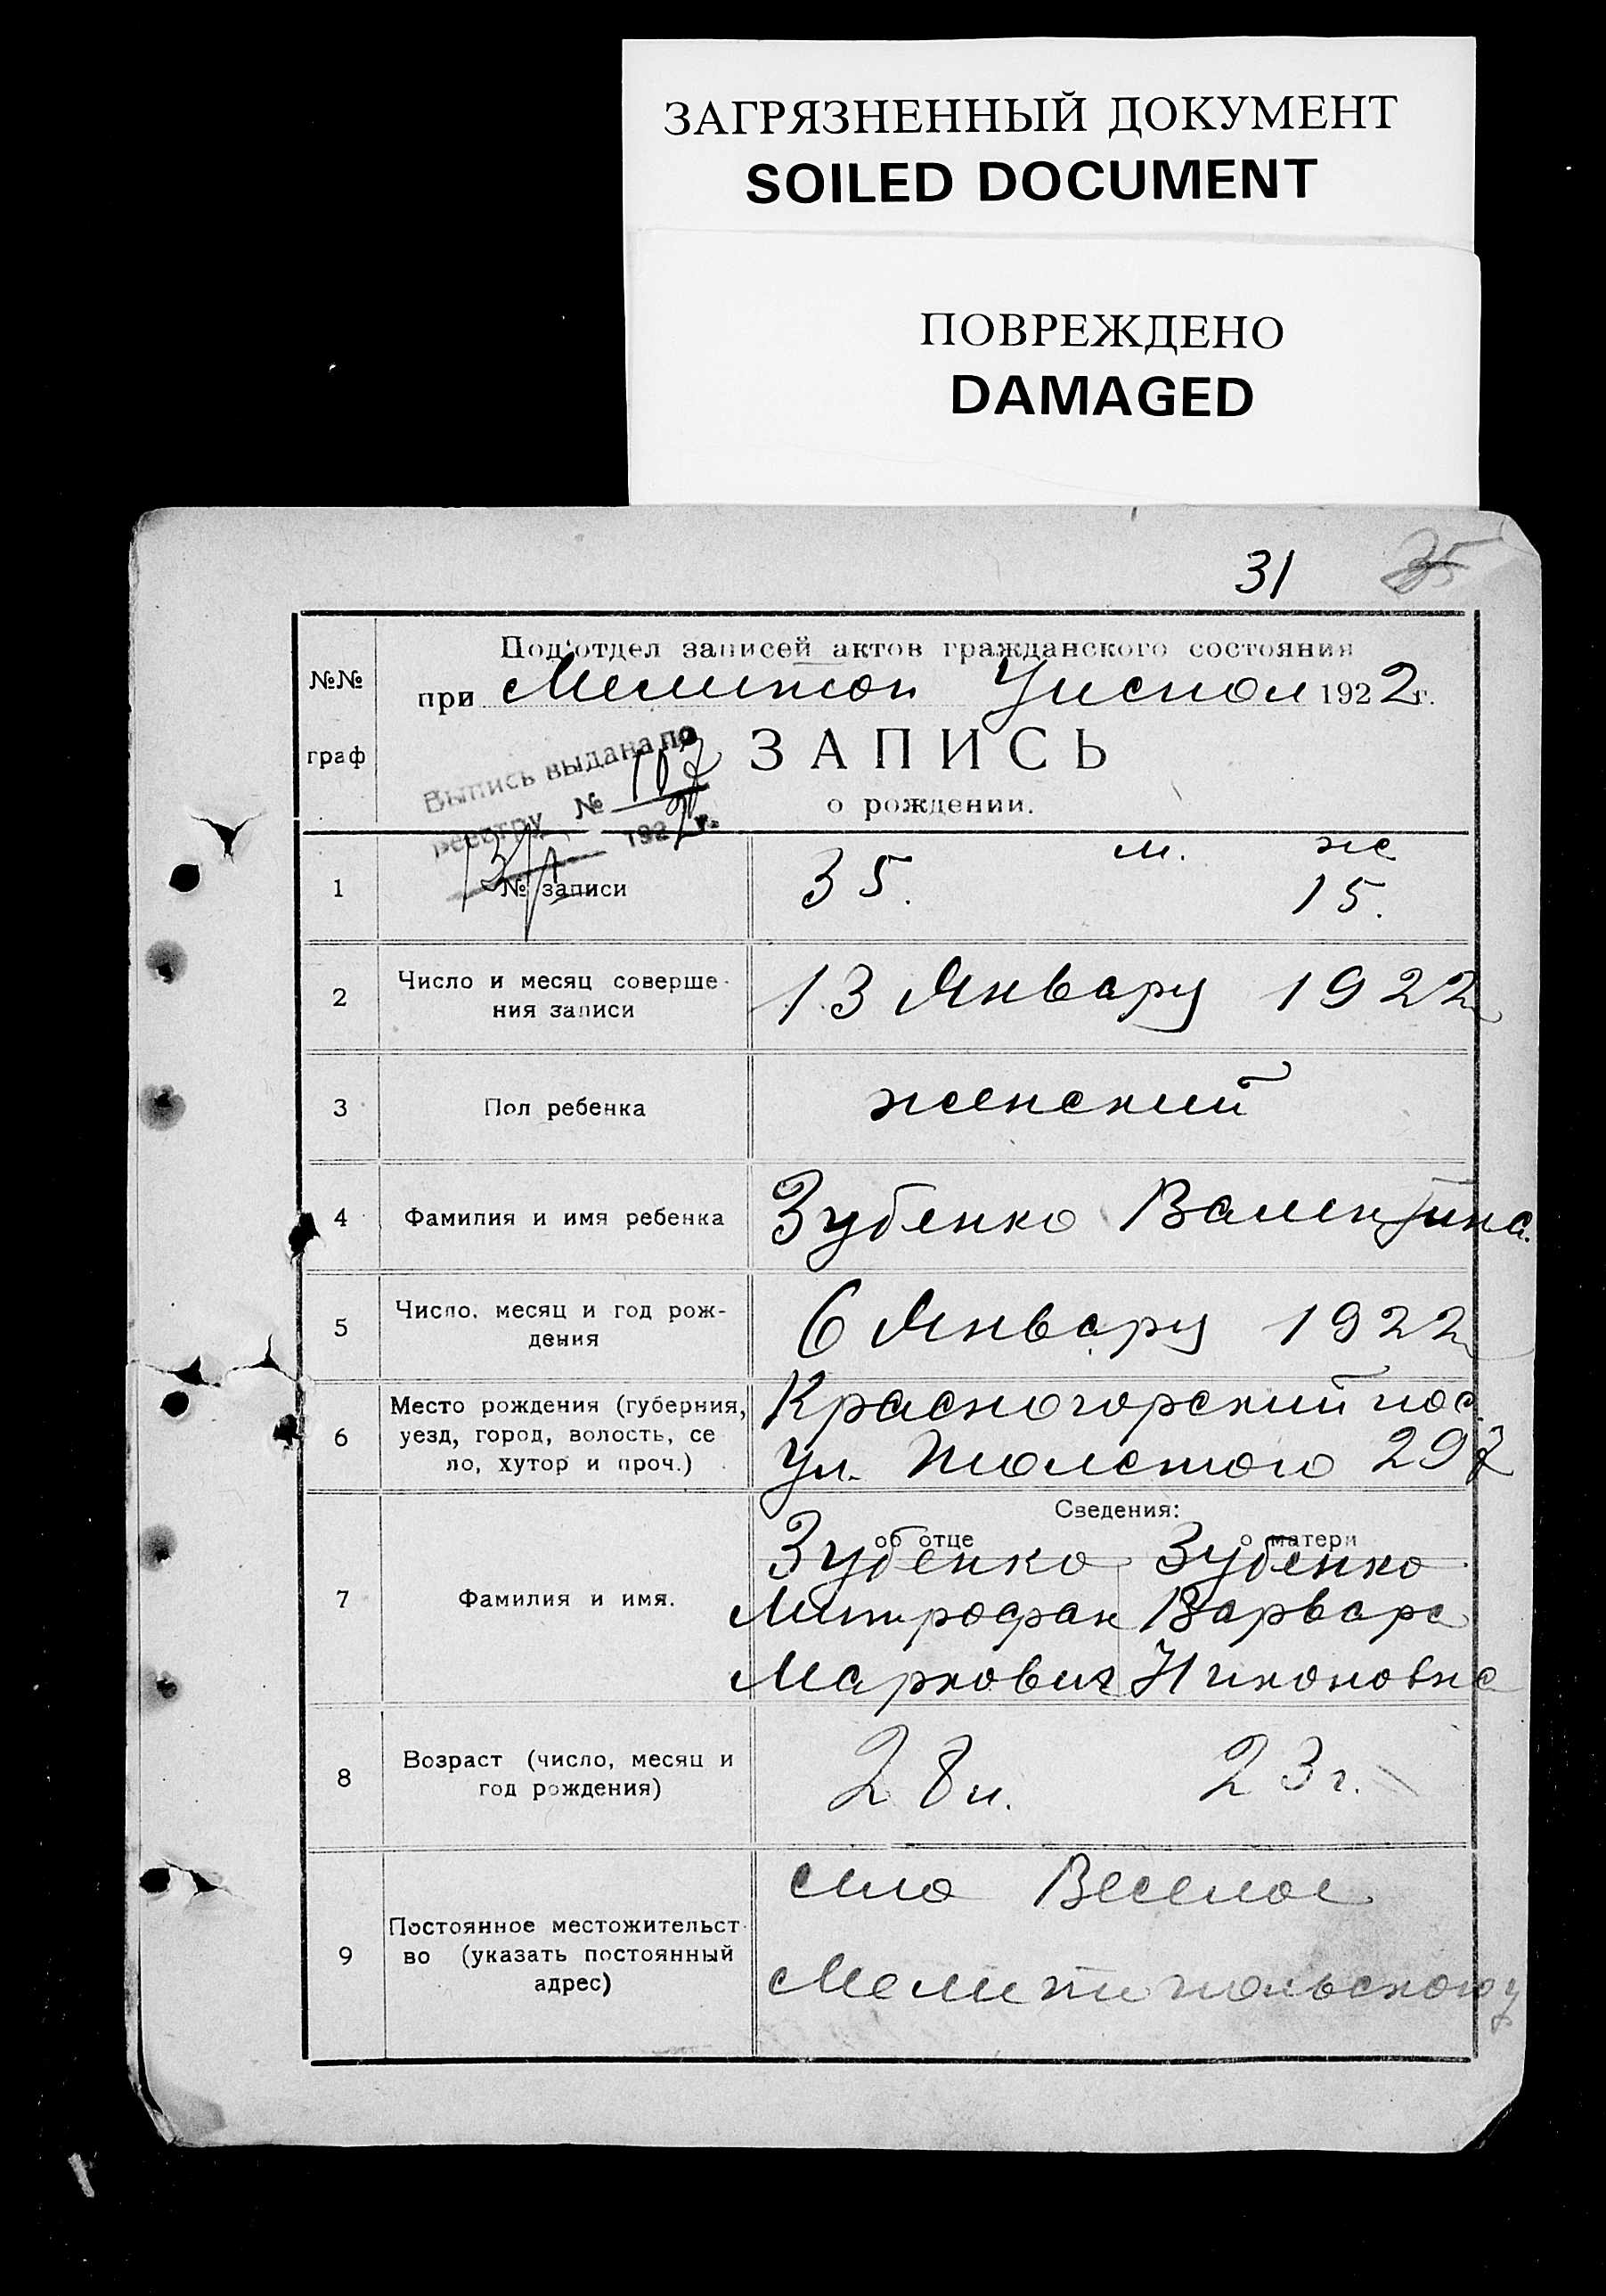 ЗАГРЯЗНЕННЫЙ ДОКУМЕНТ
SOILED DOCUMENT
ПОВРЕЖДЕНО
DAMAGED
31 35
№№ граф
Под'отдел записей актов гражданского состояния
при Мелитоп Уисполе 1922г.
Выпись выдана по
реестру №
192 г.
ЗАПИСЬ
о рождении.
1 № записи 35. м. ж 15.
2 Число и месяц соверше-
ния записи 13 Январу 1922
3 Пол ребенка женский
4 Фамилия и имя ребенка Зубенко Валентина.
5 Число, месяц и год рож-
дения 6 Январу 1922
6 Место рождения (губерния, Красногорский пос.
уезд, город, волость, се ул. Толстого 297
ло, хутор и проч.)
Сведения:
об отце о матери
Зубенко Зубенко
7 Фамилия и имя. Митрофан Варвара
Маркович Никоновна
8 Возраст (число, месяц и
год рождения) 28 л. 23 г.
село Веселое
9 Постоянное местожительст-
во (указать постоянный
адрес) Мелитопольского у